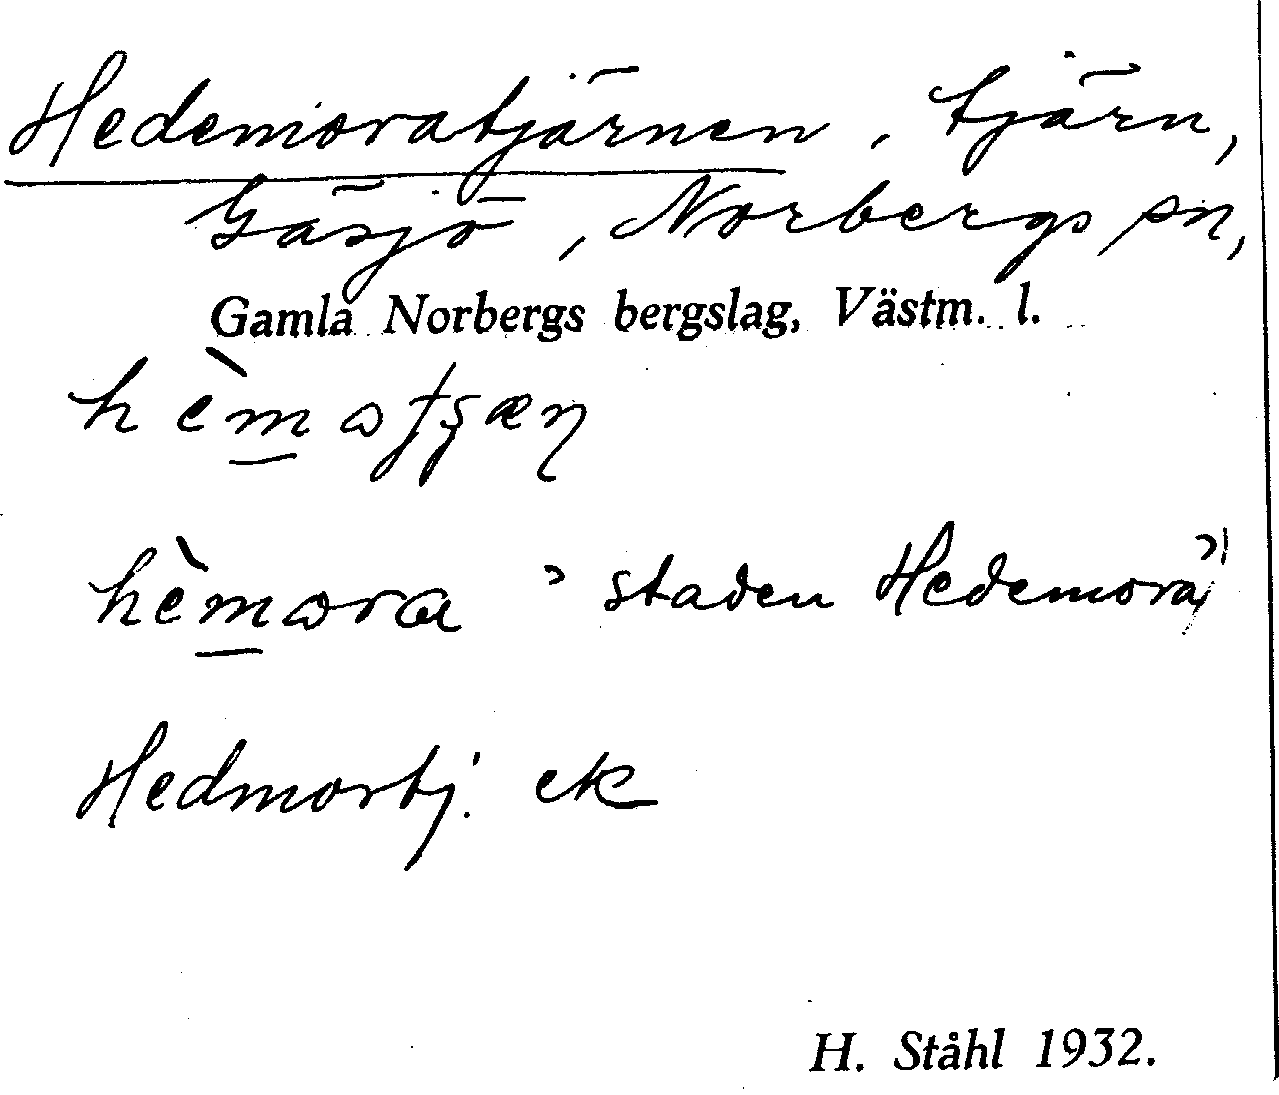 Hedemoratjärnen, tjärn,
Gäsjö, Norbergs sn,
Gamla Norbergs bergslag, Västm. l.
hèmora ʾstaden Hedemoraʾ
Hedmortj. ek
H. Ståhl 1932.